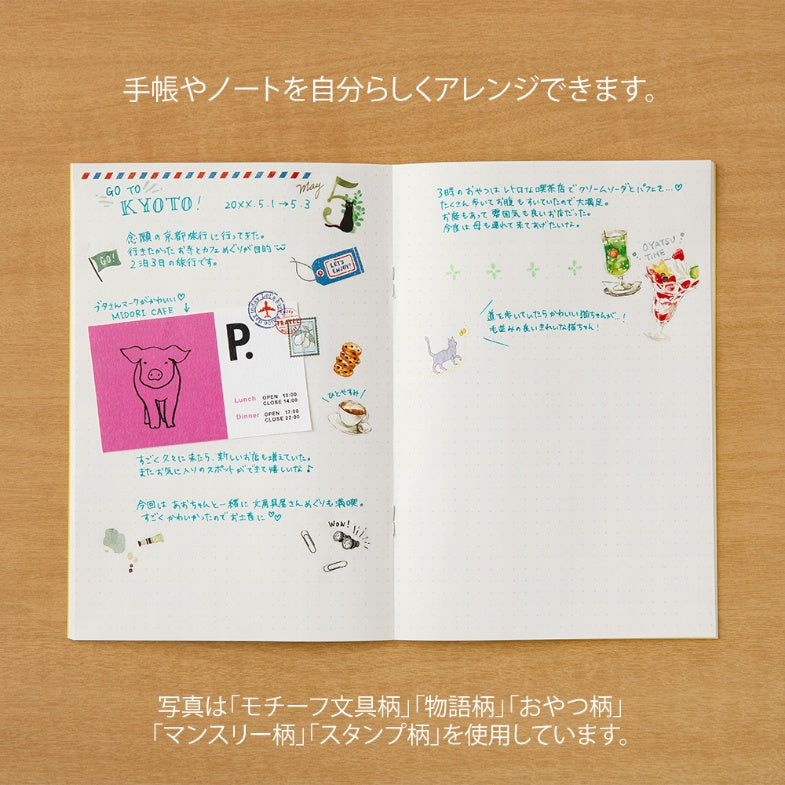 手帳やノートを自分らしくアレンジできます。
GO TO
KYOTO!
20XX.5.1→5.3
May
5
念願の京都旅行に行ってきた。
行きたかったお寺とカフェめぐりが目的
2泊3日の旅行です。
GO!
LET'S
ENJOY!
ブタさんマークがかわいい♡
MIDORI CAFE ↓
P.
TRAVEL
Lunch OPEN 10:00
CLOSE 14:00
Dinner OPEN 17:00
CLOSE 22:00
ひとやすみ
すごく久々に来たら、新しいお店も増えていた。
またお気に入りのスポットができて嬉しいな♪
今回は あおちゃんと一緒に 文房具屋さんめぐりも満喫。
すごくかわいかったのでお土産に♡♡
WOW!
3時のおやつは レトロな喫茶店でクリームソーダとパフェを…♡
たくさん歩いてお腹もすいていたので大満足。
お庭もあって雰囲気も良いお店だった。
今度は母も連れて来てあげたいな。
OYATSU
TIME
道を歩いていたらかわいい猫ちゃんが…!
毛並みの良いきれいな猫ちゃん!
写真は「モチーフ文具柄」「物語柄」「おやつ柄」
「マンスリー柄」「スタンプ柄」を使用しています。